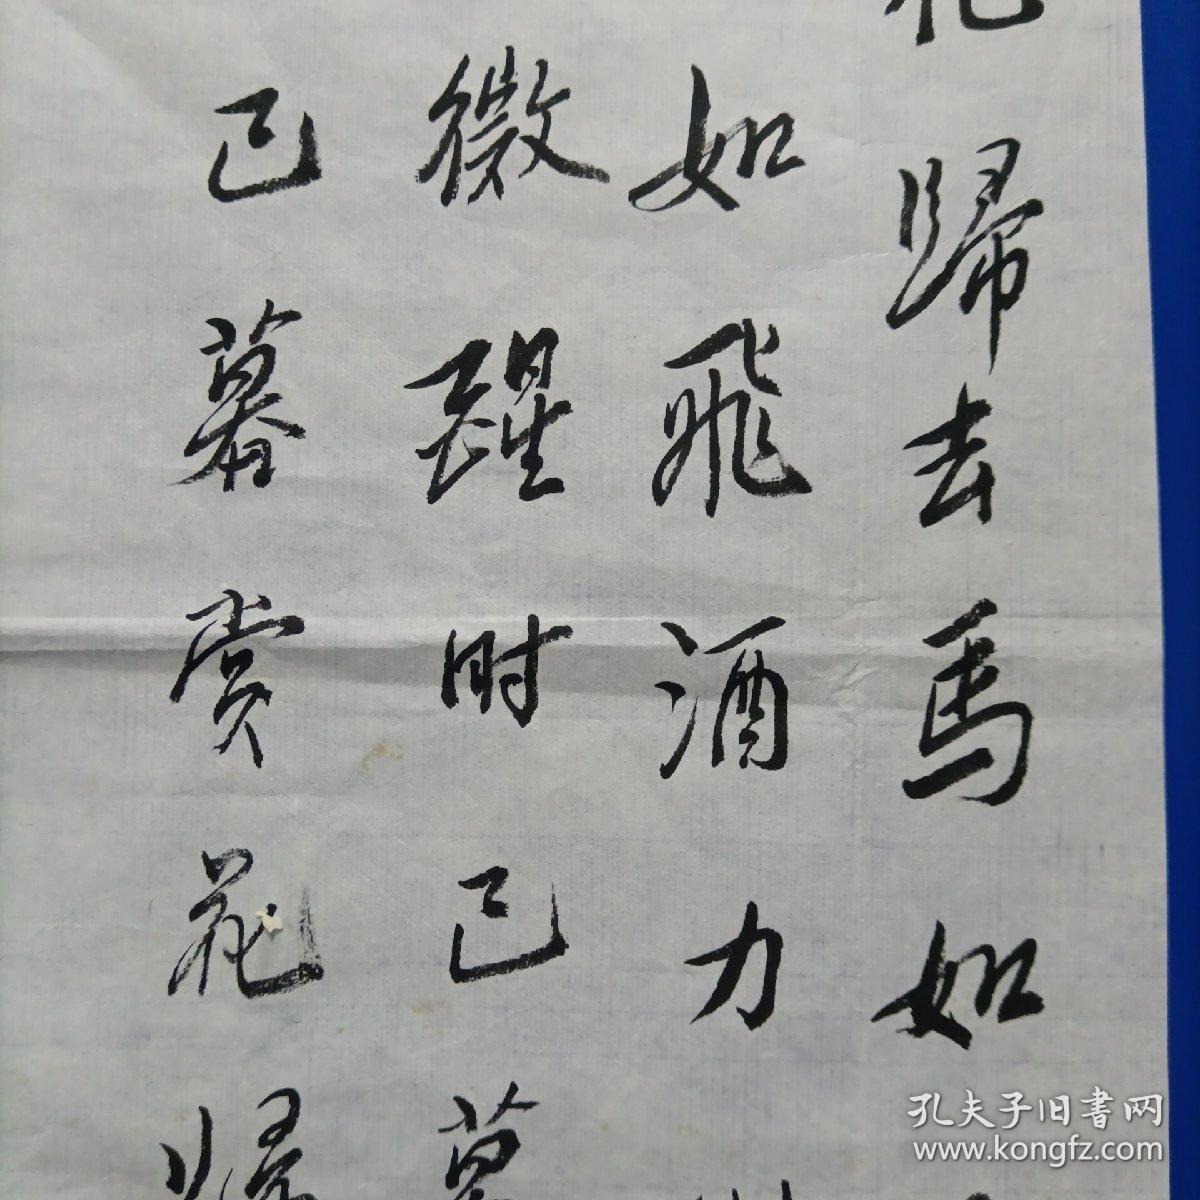 歸去馬如
如飛酒力
微醒时已暮
已暮赏花歸
孔夫子旧書网
www.kongfz.com